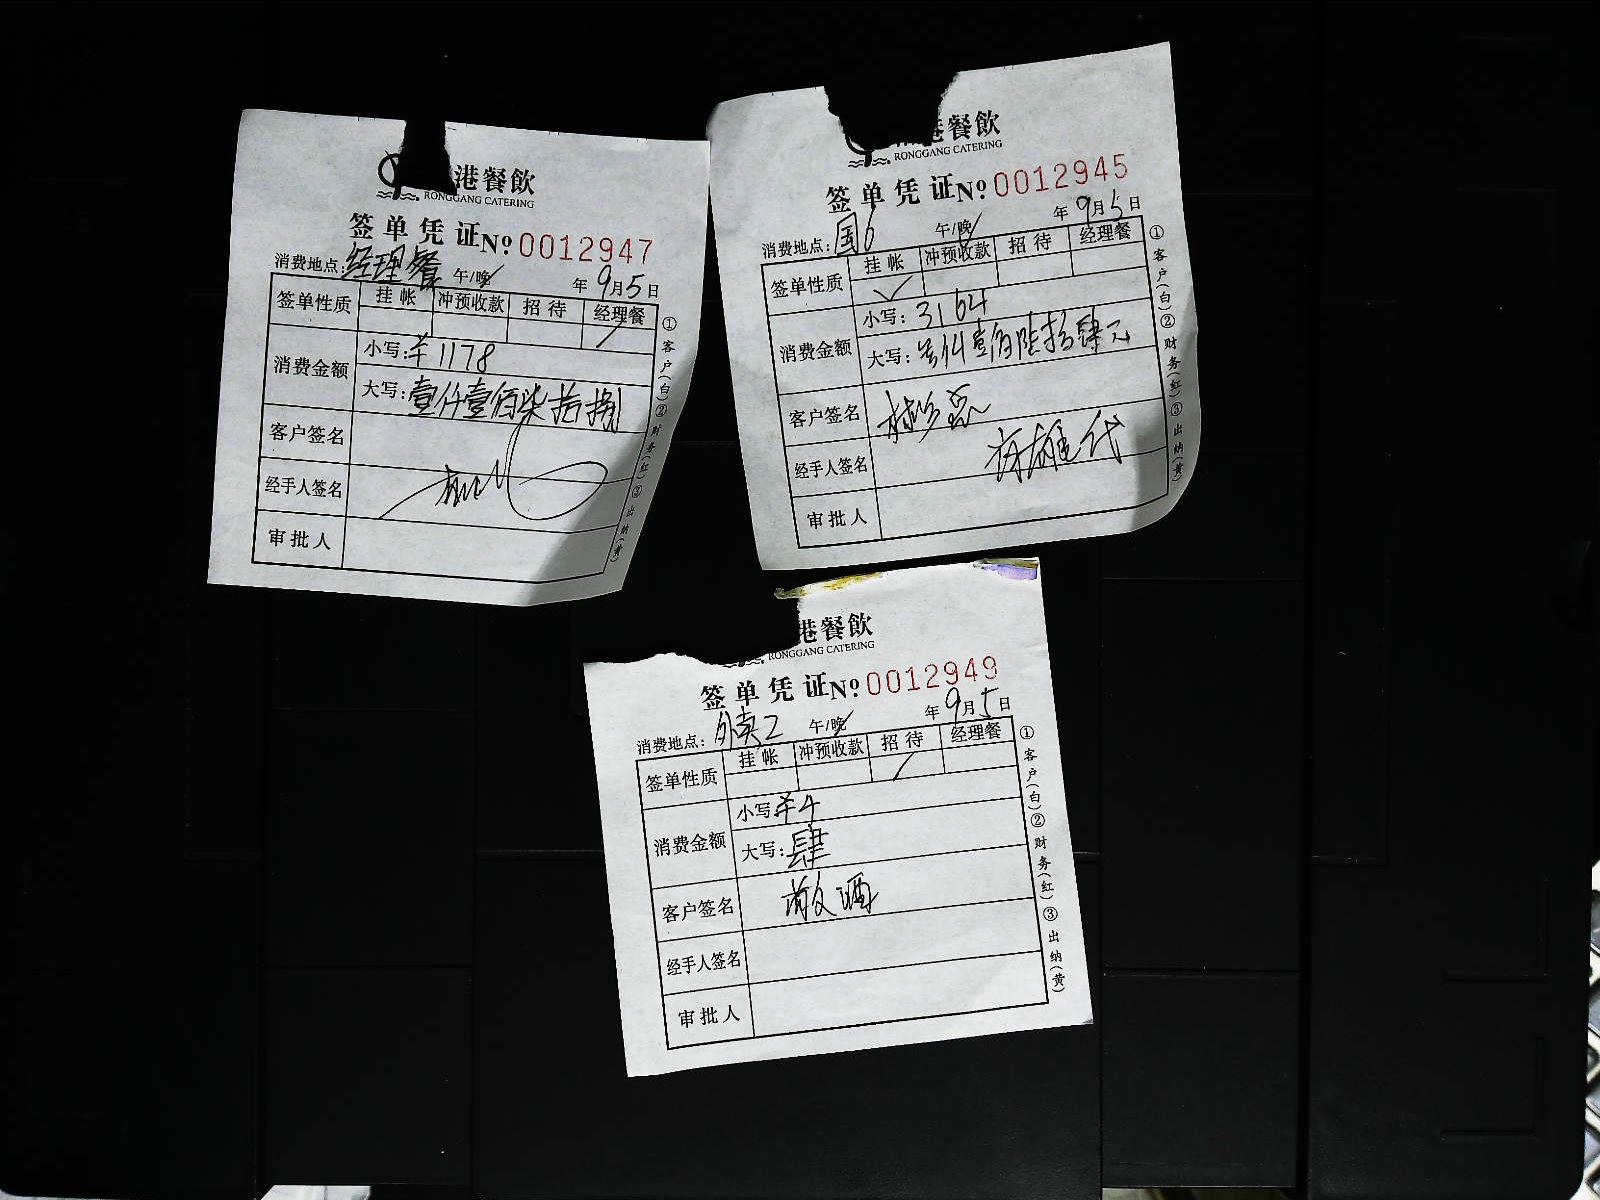 港餐飲
RONGGANG CATERING
签单凭证 № 0012947
消费地点:经理餐 午/晚 年9月5日
签单性质 挂帐 冲预收款 招待 经理餐
消费金额 小写:￥1178
大写:壹仟壹佰柒拾捌
客户签名
经手人签名
审批人
①客户(白)②财务(红)③出纳(黄)
港餐飲
RONGGANG CATERING
签单凭证 № 0012945
消费地点:国6 午/晚 年9月5日
签单性质 挂帐 冲预收款 招待 经理餐
消费金额 小写:3164
大写:叁仟壹佰陆拾肆元
客户签名
经手人签名
审批人
①客户(白)②财务(红)③出纳(黄)
港餐飲
RONGGANG CATERING
签单凭证 № 0012949
消费地点:外卖2 午/晚 年9月5日
签单性质 挂帐 冲预收款 招待 经理餐
消费金额 小写￥4
大写:肆
客户签名 敬酒
经手人签名
审批人
①客户(白)②财务(红)③出纳(黄)